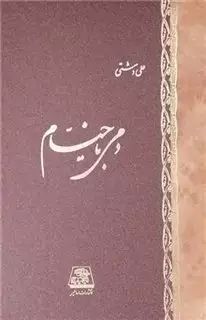 علی دشتی
دمی با خیّام